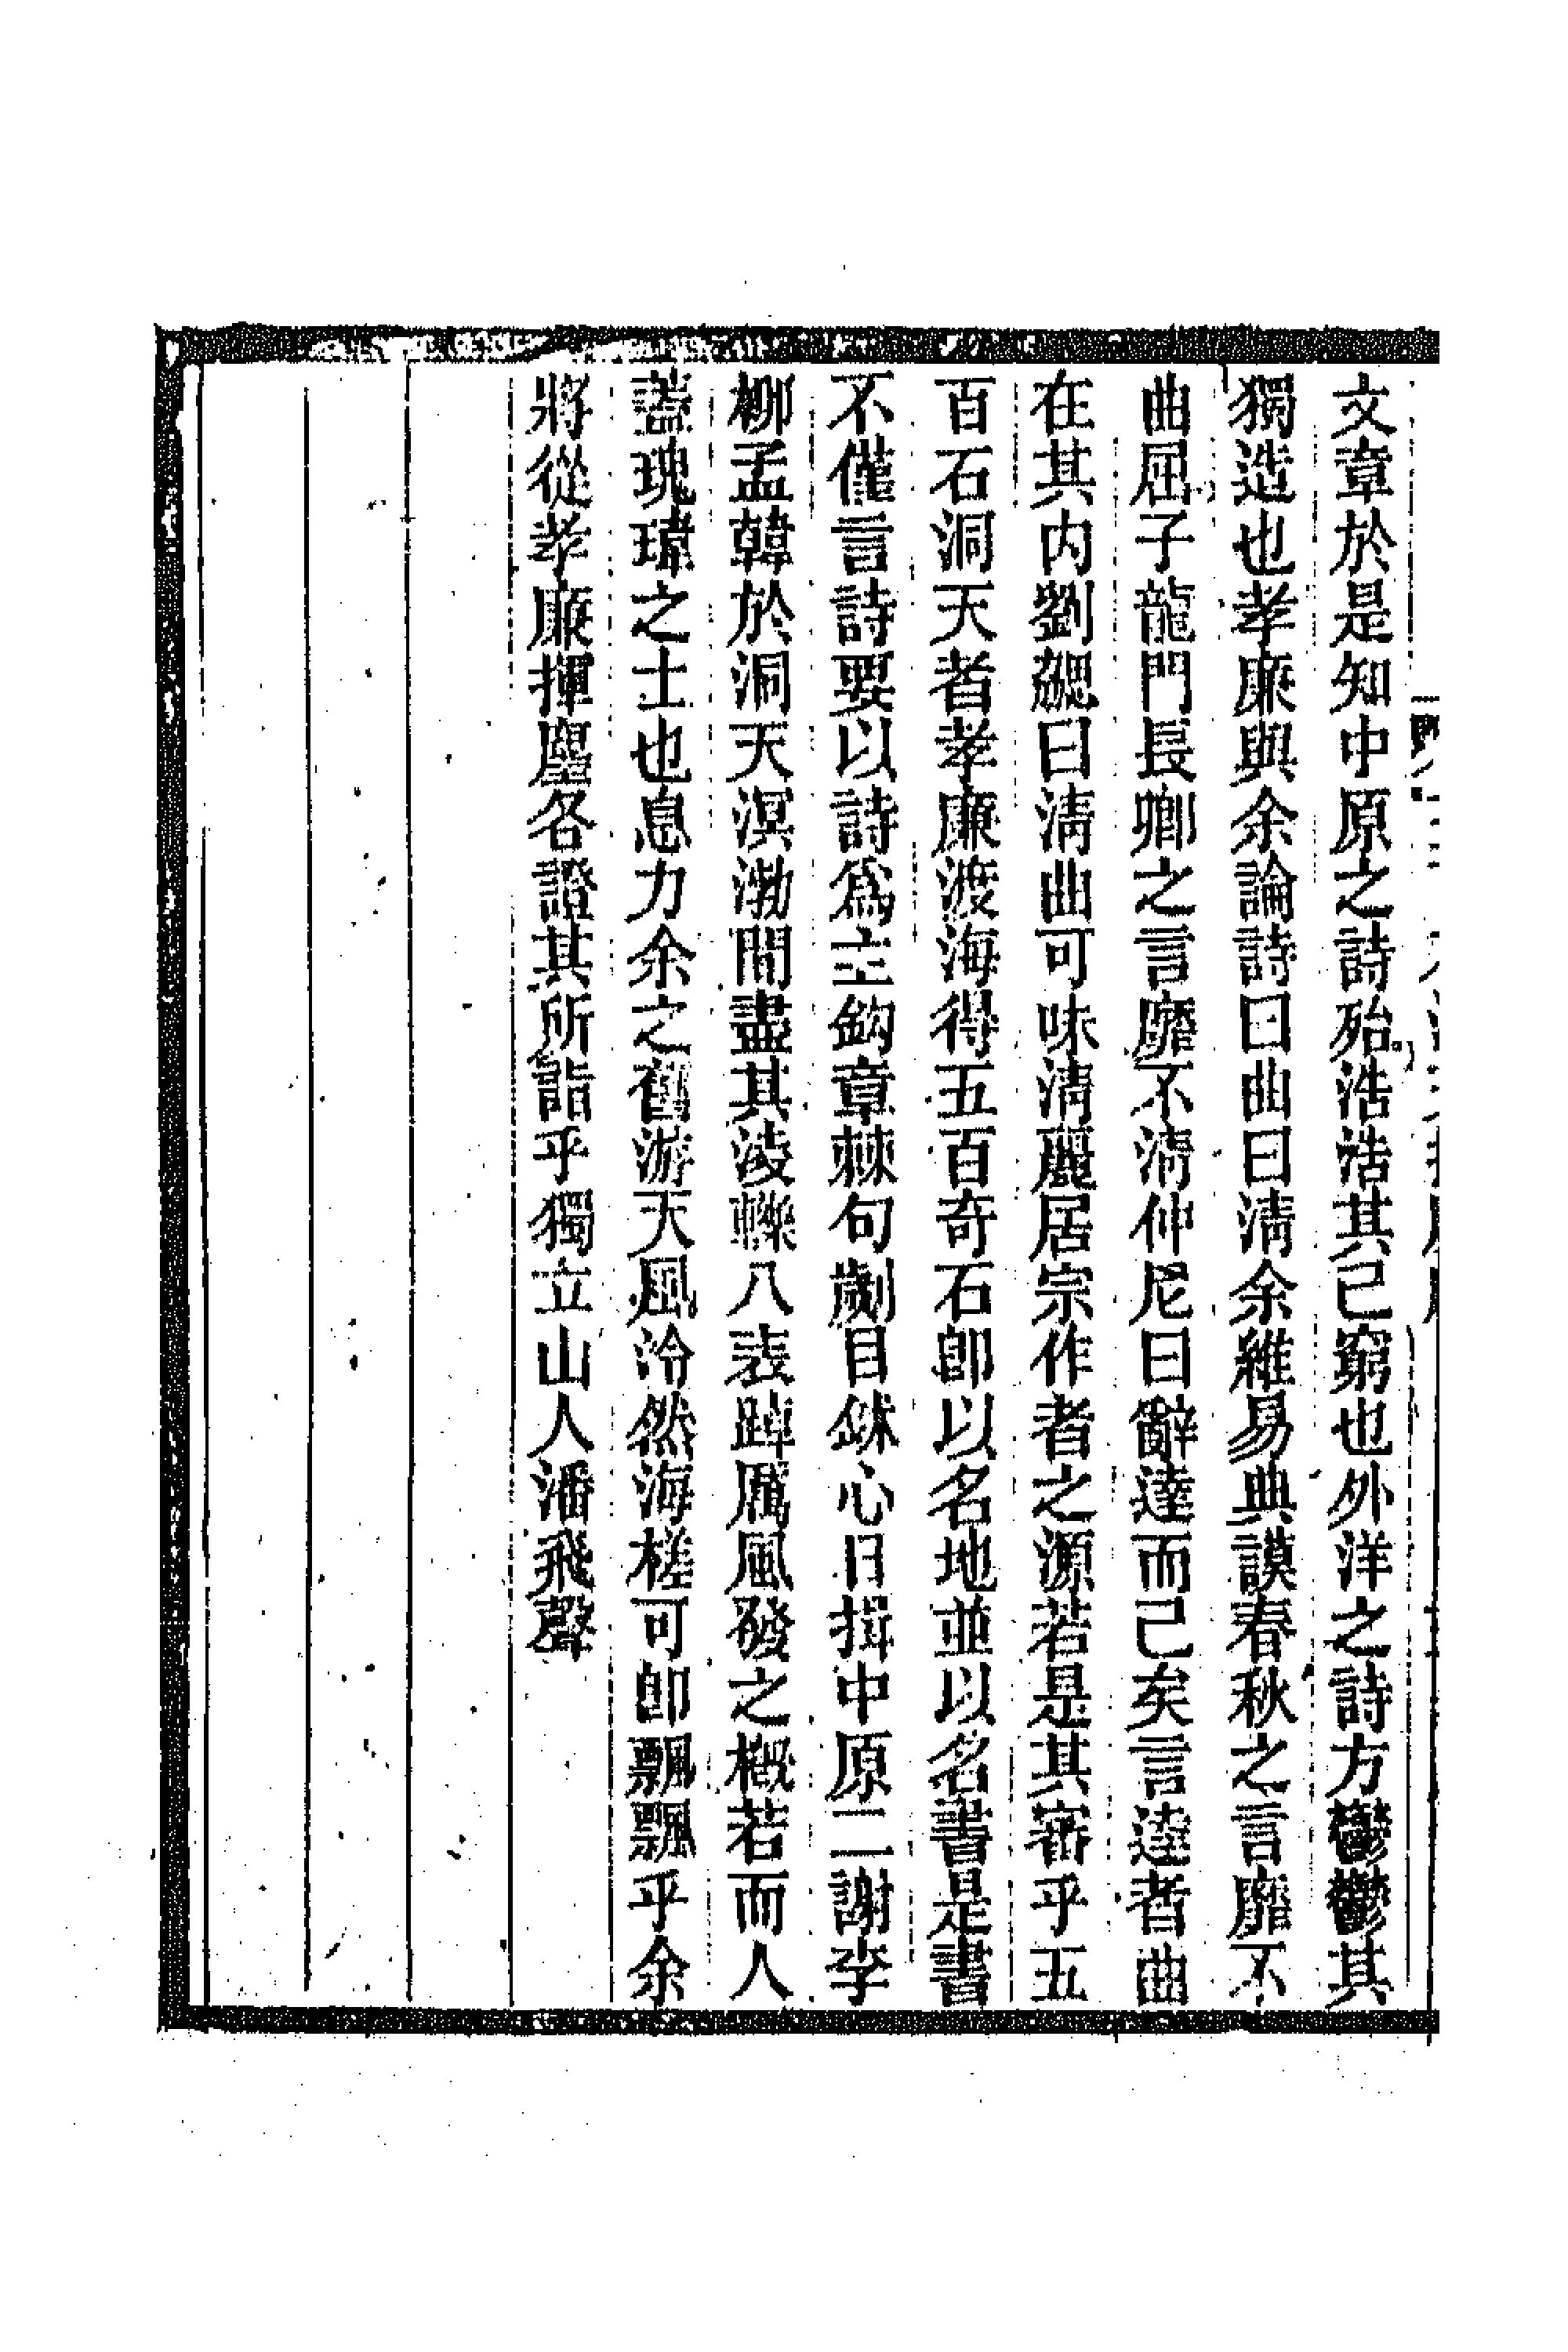 文章於是知中原之詩殆浩浩其已窮也外洋之詩方鬱鬱其
獨造也孝廉與余論詩曰曲曰淸余維易典謨春秋之言靡不
曲屈子龍門長卿之言靡不淸仲尼曰辭達而已矣言達者曲
在其内劉勰曰淸曲可味淸麗居宗作者之源若是其審乎五
百石洞天者孝廉渡海得五百奇石卽以名地並以名書是書
不僅言詩要以詩爲主鉤章棘句劌目鉥心日揖中原二謝李
柳孟韓於洞天溟渤間盡其淩轢八表踔厲風發之槪若而人
葢瑰瑋之士也息力余之舊游天風泠然海槎可卽飄飄乎余
將從孝廉揮麈各證其所詣乎獨立山人潘飛聲